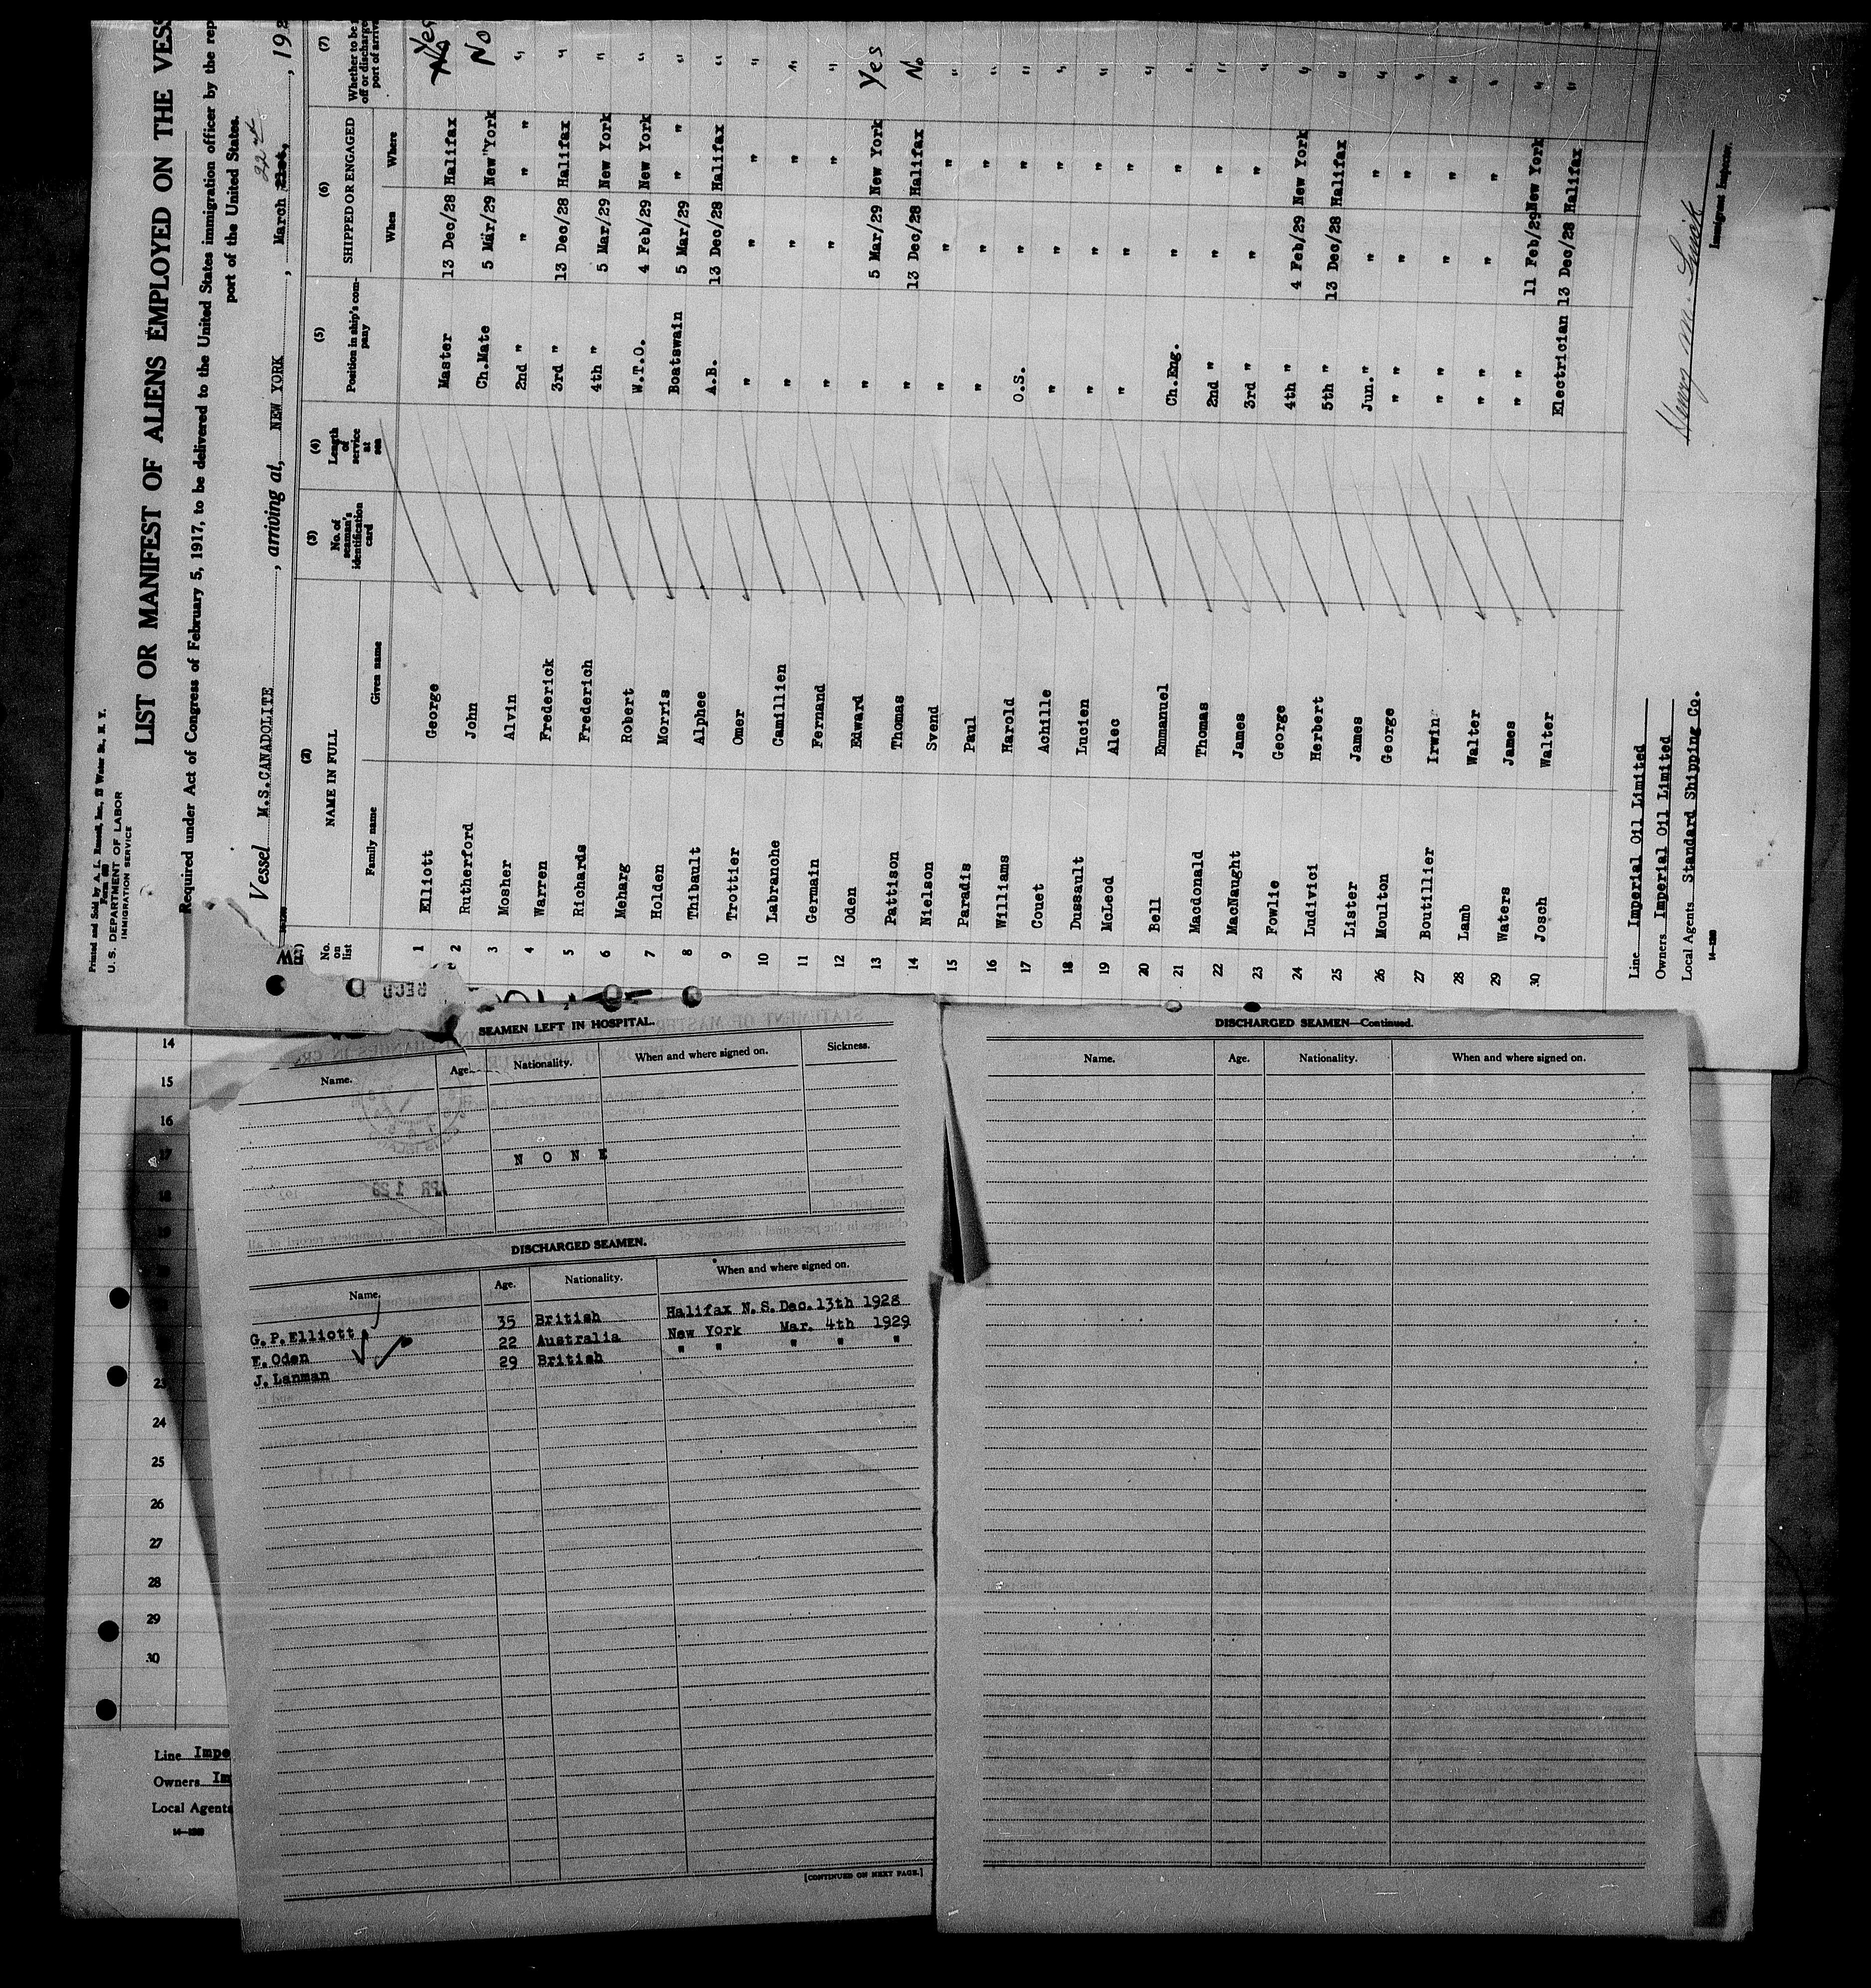 Printed and Sold by A. L. Russell, Inc., Water St., N. Y.
Form 689
U. S. DEPARTMENT OF LABOR
IMMIGRATION SERVICE
LIST OR MANIFEST OF ALIENS EMPLOYED ON THE VESS
Required under Act of Congress of February 5, 1917, to be delivered to the United States immigration officer by the rep
port of the United States.
Vessel M.S.CANADOLITE, arriving at, NEW YORK, March 21st, 22nd, 192
(1) (2) (3) (4) (5) (6) (7)
No. on list NAME IN FULL No. of seaman's identification card Length of service at sea Position in ship's company SHIPPED OR ENGAGED Whether to be
off or discharge
port of arriv
Family name Given name When Where
1 Elliott George Master 13 Dec/28 Halifax No Yes
2 Rutherford John Ch.Mate 5 Mar/29 New York No
3 Mosher Alvin 2nd " " " "
4 Warren Frederick 3rd " 13 Dec/28 Halifax "
5 Richards Frederich 4th " 5 Mar/29 New York "
6 Meharg Robert W.T.O. 4 Feb/29 New York "
7 Holden Morris Boatswain 5 Mar/29 " "
8 Thibault Alphee A.B. 13 Dec/28 Halifax "
9 Trottier Omer " " " "
10 Labranche Camillien " " " "
11 Germain Fernand " " " "
12 Oden Edward " 5 Mar/29 New York Yes
13 Pattison Thomas " 13 Dec/28 Halifax No
14 Nielson Svend " " " "
15 Paradis Paul " " " "
16 Williams Harold O.S. " " "
17 Couet Achille " " " "
18 Dussault Lucien " " " "
19 McLeod Alec " " " "
20 Bell Emmanuel Ch.Eng. " " "
21 Macdonald Thomas 2nd " " " "
22 MacNaught James 3rd " " " "
23 Fowlie George 4th " 4 Feb/29 New York "
24 Ludivici Herbert 5th " 13 Dec/28 Halifax "
25 Lister James Jun." " " "
26 Moulton George " " " " "
27 Boutillier Irwin " " " " "
28 Lamb Walter " " " " "
29 Waters James " " 11 Feb/29 New York "
30 Josch Walter Electrician 13 Dec/28 Halifax "
Line Imperial Oil Limited
Owners Imperial Oil Limited
Local Agents Standard Shipping Co.
Henry M. Smith
Immigrant Inspector.
RECD
14
15
16
17
18
19
23
24
25
26
27
28
29
30
Line Impe
Owners Im
Local Agents
SEAMEN LEFT IN HOSPITAL.
Name. Age. Nationality. When and where signed on. Sickness.
N O N E
APR 1 29
DISCHARGED SEAMEN.
Name. Age. Nationality. When and where signed on.
G.P.Elliott 35 British Halifax N.S. Dec. 13th 1928
E.Oden 22 Australia New York Mar. 4th 1929
J.Lanman 29 British " " " " "
[CONTINUED ON NEXT PAGE.]
DISCHARGED SEAMEN—Continued.
Name. Age. Nationality. When and where signed on.